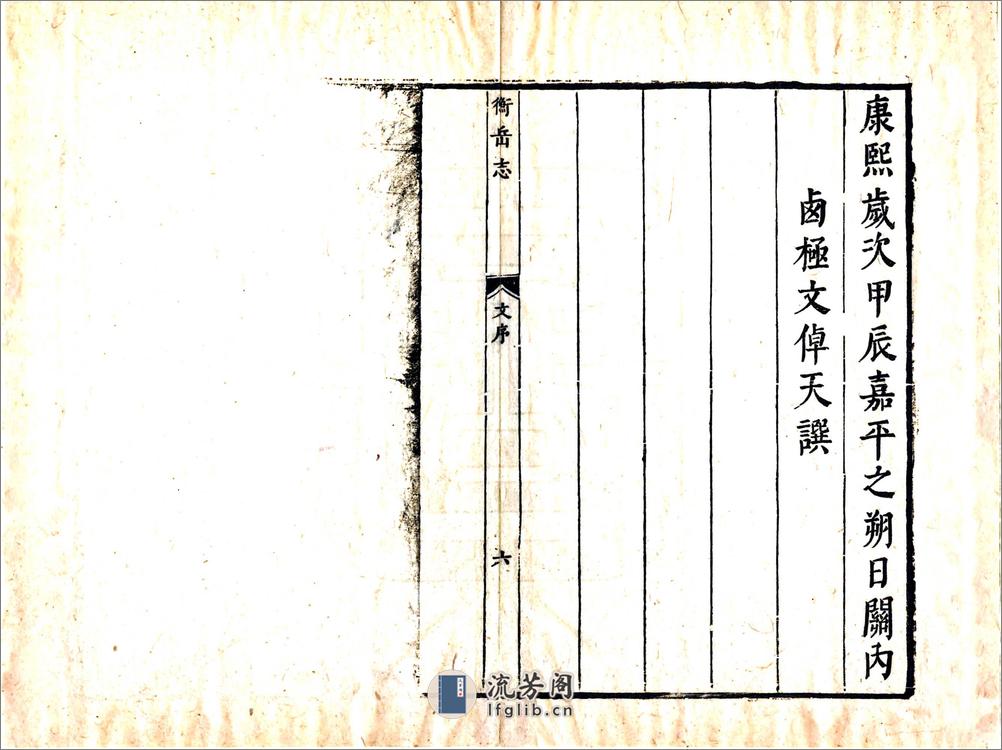 康熙歲次甲辰嘉平之朔日關內
鹵極文倬天譔
衡岳志
文序
六
流芳阁
lfglib.cn